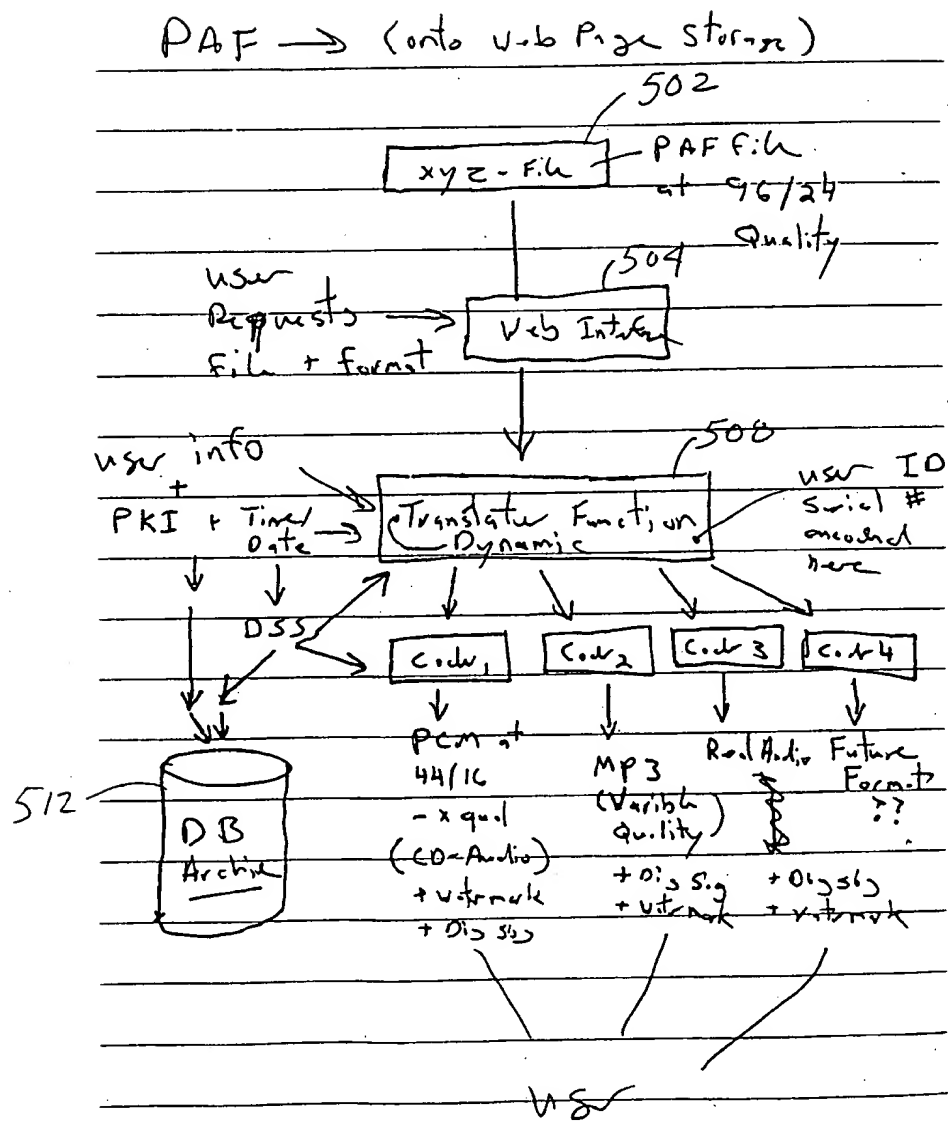 PAF → (onto Web Page Storage)
502
xyz - File
PAF File
at 96/24
Quality
504
User
Requests
File + format
Web Interface
508
user info
+
PKI + Time/
Date
Translator Function
Dynamic
user ID
Serial #
encoded
here
DSS
Codec 1
Codec 2
Codec 3
Codec 4
PCM at
44/16
- x qual
(CD-Audio)
+ watermark
+ Dig sig
MP3
(Variable
Quality)
+ Dig Sig
+ Watermark
Real Audio
+ Dig sig
+ watermark
Future
Format
??
.
512
DB
Archive
user